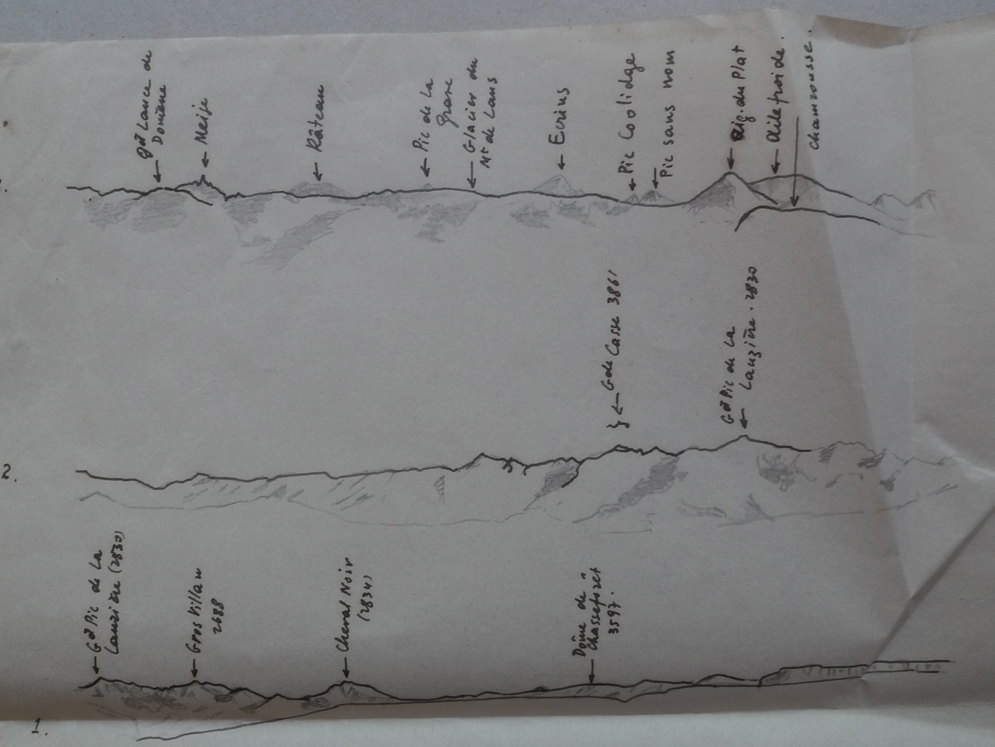 Gd Lance de
Domène
Meije
Râteau
Pic de La
Grave
Glacier du
Mt de Lans
Ecrins
Pic Coolidge
Pic sans nom
Aig. du Plat
Ailefroide.
Chamrousse.
Gde Casse 3861
Gd Pic de La
Lauzière. 2830
2.
Gd Pic de La
Lauzière (2830)
Gros Villan
2688
Cheval Noir
(2834)
Dôme de
Chasseforet
3597.
1.